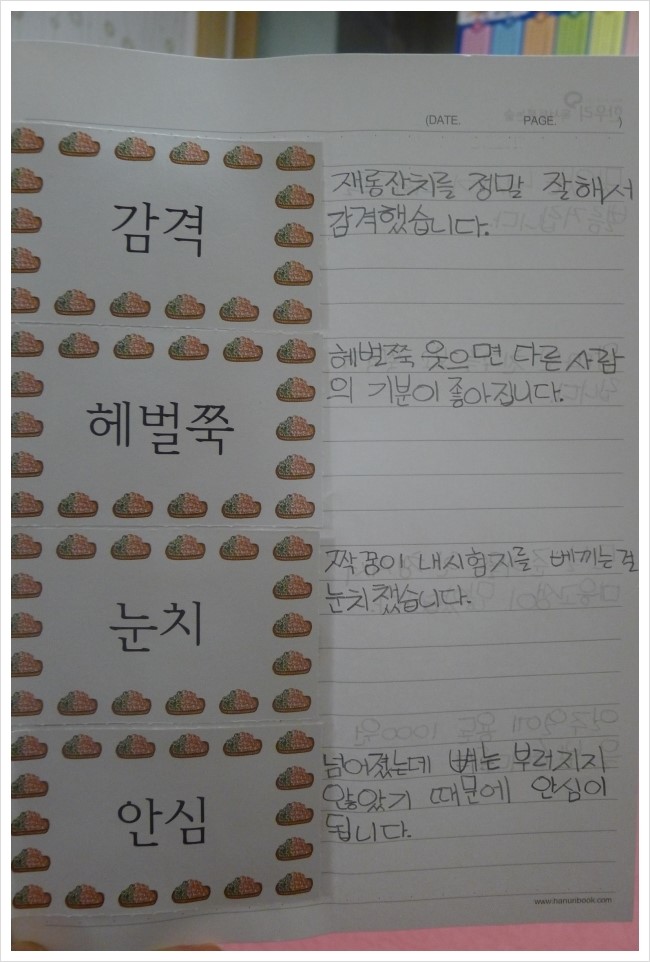 (DATE. PAGE. )
감격
재롱잔치를 정말 잘해서
감격했습니다.
헤벌쭉
헤벌쭉 웃으면 다른 사람
의 기분이 좋아집니다.
눈치
짝꿍이 내시험지를 베끼는걸
눈치챘습니다.
안심
넘어졌는데 뼈는 부러지지
않았기 때문에 안심이
됩니다.
www.hanuribook.com